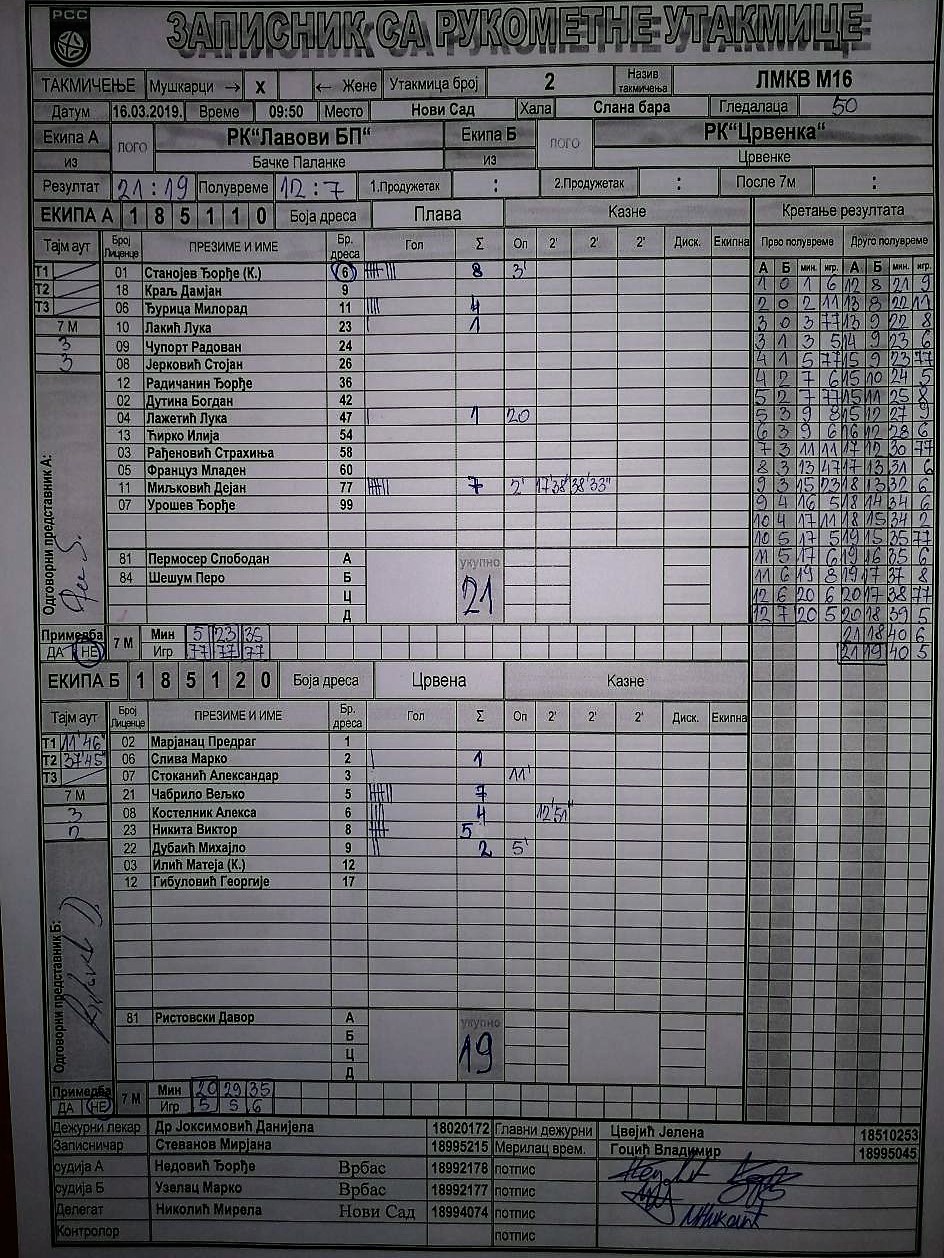 РСС
ЗАПИСНИК СА РУКОМЕТНЕ УТАКМИЦЕ
ТАКМИЧЕЊЕ Мушкарци → X ← Жене Утакмица број 2 Назив такмичења ЛМКВ М16
Датум 16.03.2019. Време 09:50 Место Нови Сад Хала Слана бара Гледалаца 50
Екипа А ЛОГО РК"Лавови БП" Екипа Б ЛОГО РК"Црвенка"
из Бачке Паланке из Црвенке
Резултат 21 : 19 Полувреме 12 : 7 1.Продужетак : 2.Продужетак : После 7м :
ЕКИПА А 1 8 5 1 1 0 Боја дреса Плава Казне Кретање резултата
Тајм аут Број Лиценце ПРЕЗИМЕ И ИМЕ Бр. дреса Гол Σ Оп 2' 2' 2' Диск. Екипна Прво полувреме Друго полувреме
А Б мин. игр. А Б мин. игр.
Т1 01 Станојев Ђорђе (К.) 6 8 3' 1 0 1 6 12 8 21 9
Т2 18 Краљ Дамјан 9 2 0 2 11 13 8 22 11
Т3 06 Ђурица Милорад 11 4 3 0 3 77 13 9 22 8
7 М 10 Лакић Лука 23 1 3 1 3 5 14 9 23 6
3 09 Чупорт Радован 24 4 1 5 77 15 9 23 77
3 08 Јерковић Стојан 26 4 2 7 6 15 10 24 5
12 Радичанин Ђорђе 36 5 2 7 77 15 11 25 8
02 Дутина Богдан 42 5 3 9 8 15 12 27 9
04 Лажетић Лука 47 1 20 6 3 9 6 16 12 28 6
13 Ћирко Илија 54 7 3 11 11 17 12 30 77
03 Рађеновић Страхиња 58 8 3 13 47 17 13 31 6
05 Француз Младен 60 9 3 15 23 18 13 32 6
11 Миљковић Дејан 77 7 2' 17'38" 38'33" 9 4 16 5 18 14 34 6
07 Урошев Ђорђе 99 10 4 17 11 18 15 34 2
10 5 17 5 19 15 35 77
81 Пермосер Слободан А укупно 11 5 17 6 19 16 35 6
84 Шешум Перо Б 21 11 6 19 8 19 17 37 8
Ц 12 6 20 6 20 17 38 77
Д 12 7 20 5 20 18 39 5
Одговорни представник А:
Примедба 7 М Мин 5 23 35 21 18 40 6
ДА НЕ Игр 77 77 77 21 19 40 5
ЕКИПА Б 1 8 5 1 2 0 Боја дреса Црвена Казне
Тајм аут Број Лиценце ПРЕЗИМЕ И ИМЕ Бр. дреса Гол Σ Оп 2' 2' 2' Диск. Екипна
Т1 11'46" 02 Марјанац Предраг 1
Т2 37'45" 06 Слива Марко 2 1
Т3 07 Стоканић Александар 3 11'
7 М 21 Чабрило Вељко 5 7
3 08 Костелник Алекса 6 4 12'51"
2 23 Никита Виктор 8 5
22 Дубаић Михајло 9 2 5'
03 Илић Матеја (К.) 12
12 Гибуловић Георгије 17
Одговорни представник Б:
81 Ристовски Давор А укупно
Б 19
Ц
Д
Примедба 7 М Мин 20 29 35
ДА НЕ Игр 5 5 6
Дежурни лекар Др Јоксимовић Данијела 18020172 Главни дежурни Цвејић Јелена 18510253
Записничар Стеванов Мирјана 18995215 Мерилац врем. Гоцић Владимир 18995045
судија А Недовић Ђорђе Врбас 18992178 потпис
судија Б Узелац Марко Врбас 18992177 потпис
Делегат Николић Мирела Нови Сад 18994074 потпис
Контролор потпис